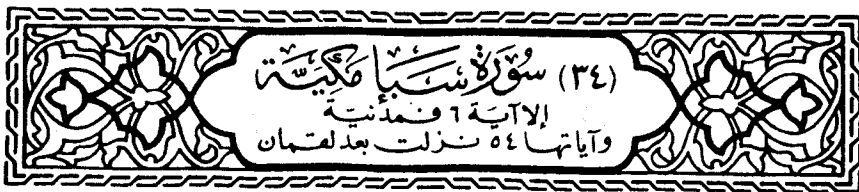 (٣٤) سُورَةُ سَبَإٍ مَكِّيَّة
إلا آية ٦ فمدنية
وآياتها ٥٤ نزلت بعد لقمان